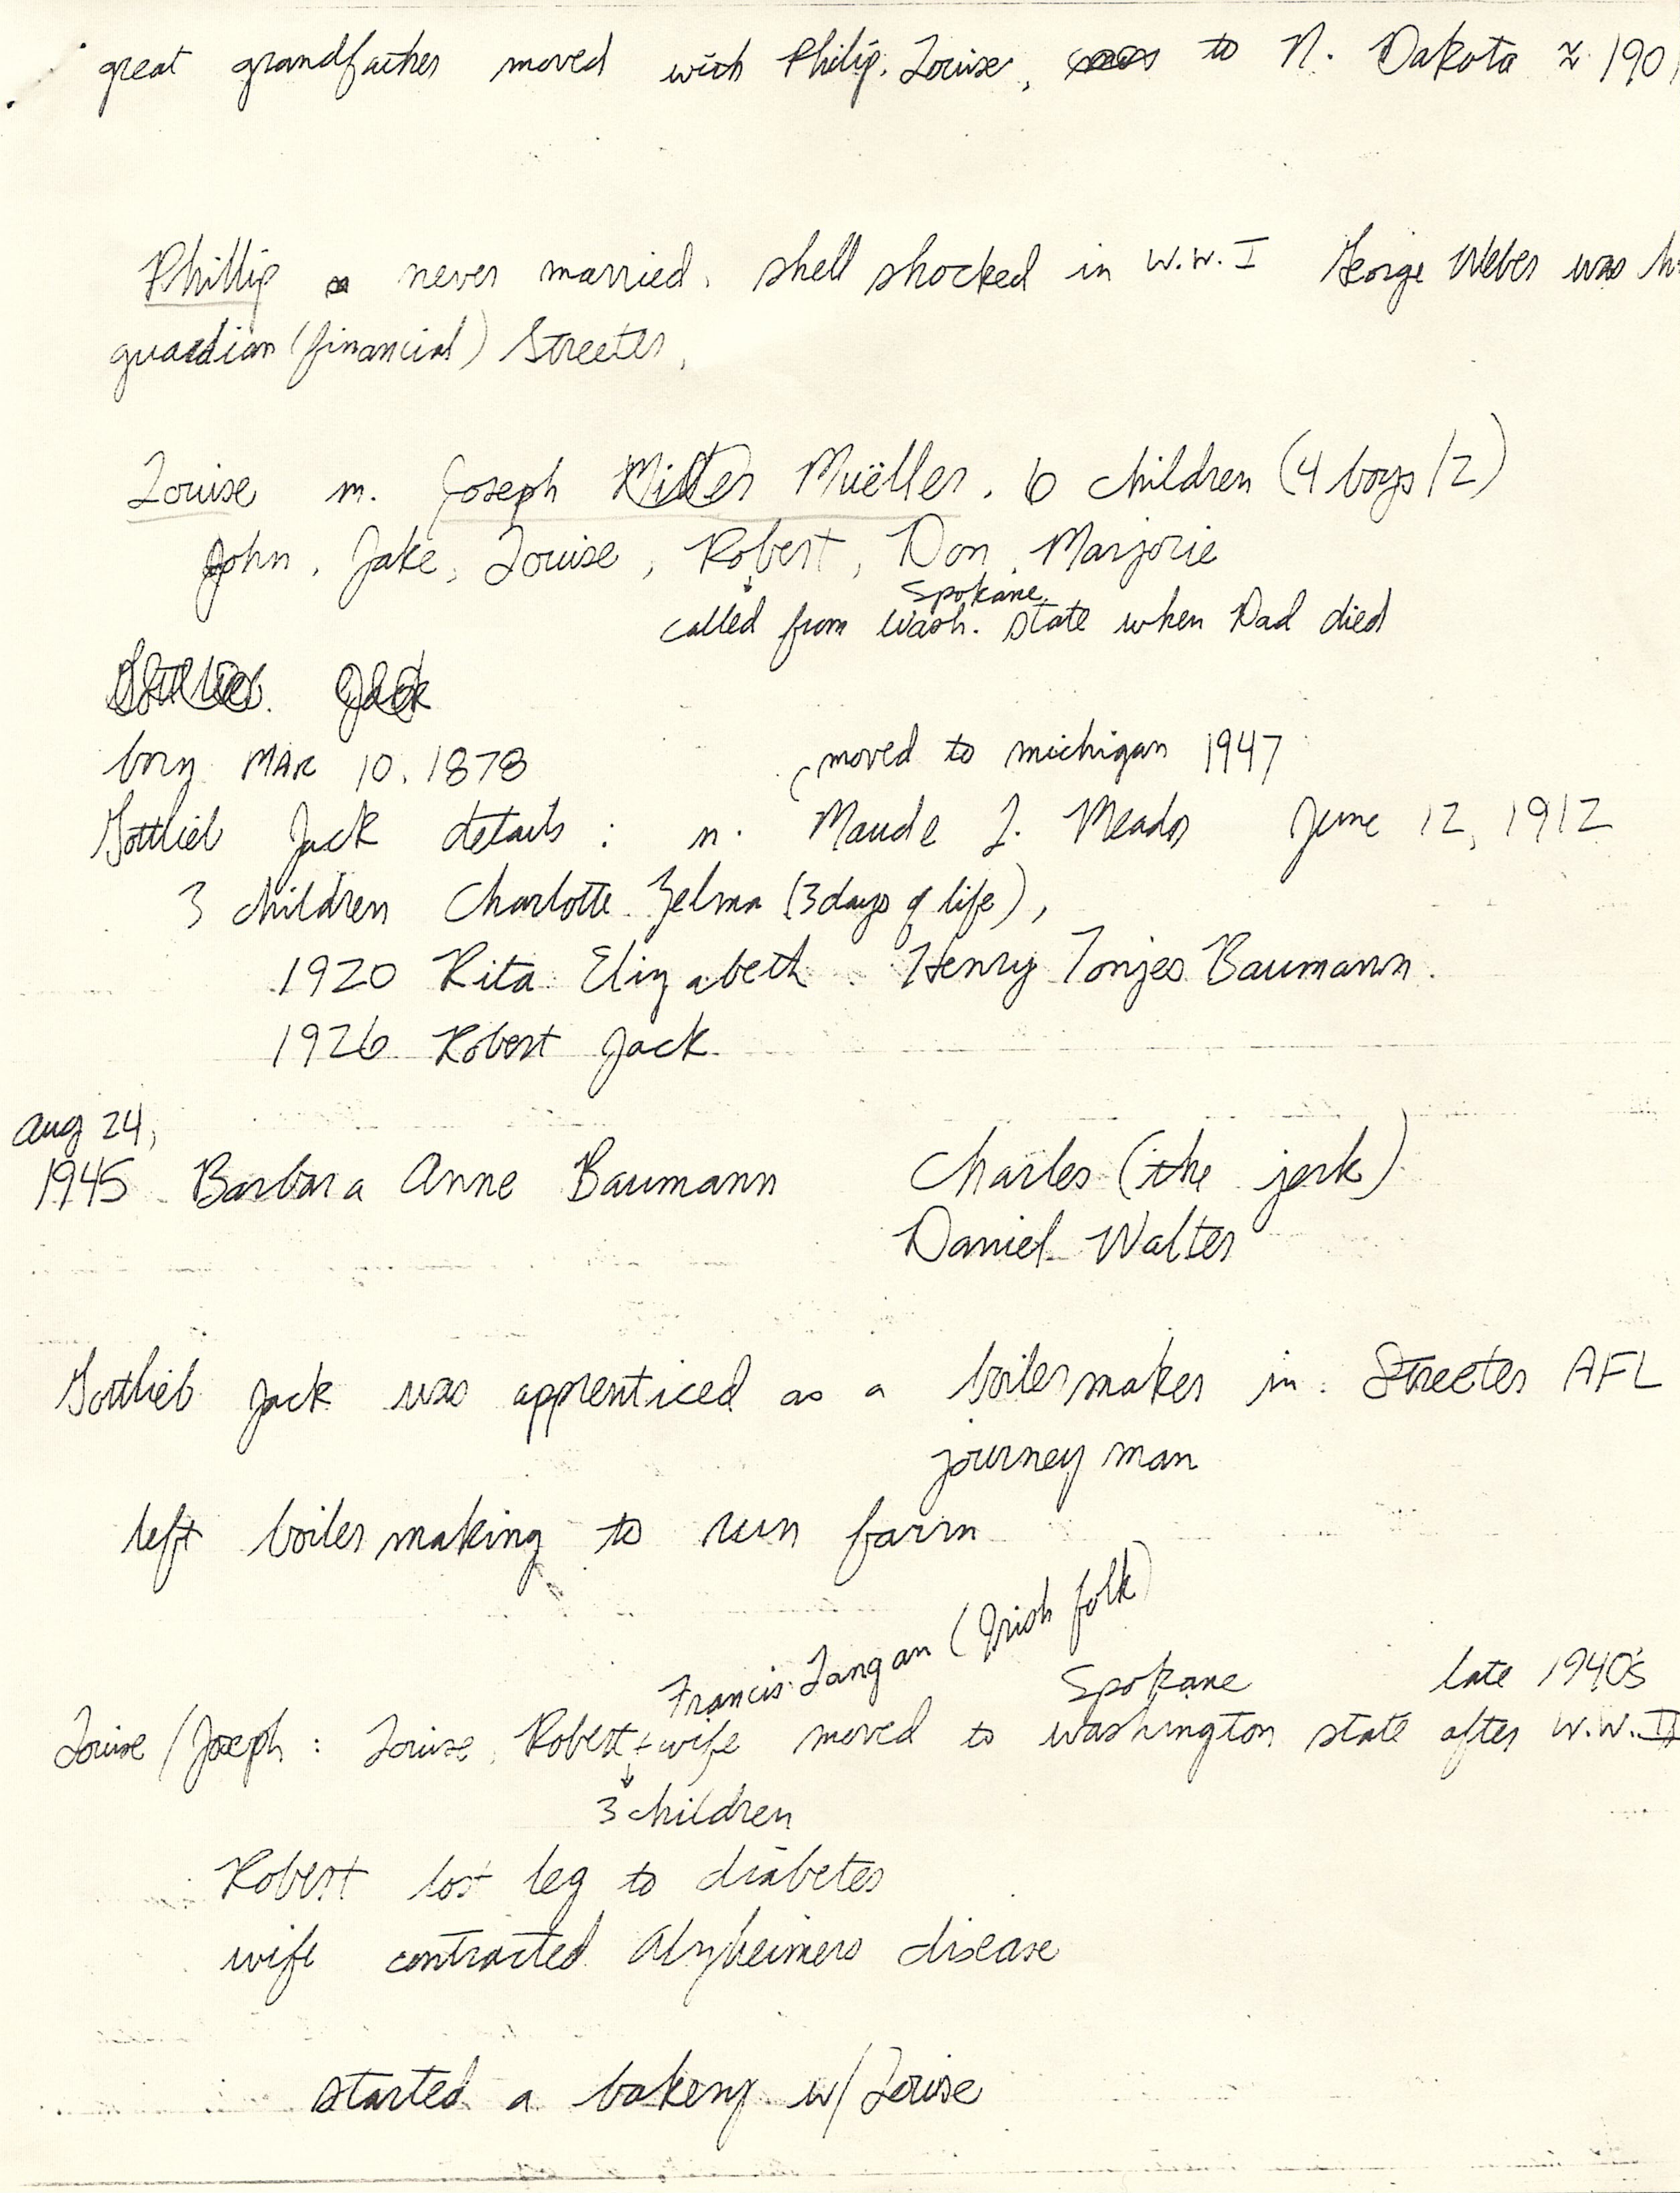 great grandfather moved with Philip, Louise, to N. Dakota ≈ 190
Phillip never married. shell shocked in W.W. I George Weber was
guardian (financial) Streeter,
Louise m. Joseph Miller Muëller. 6 children (4 boys/2)
John, Jake, Louise, Robert, Don, Marjorie
Spokane
called from Wash. state when Dad died
Gottlieb. Jack
born MAR 10. 1878
moved to michigan 1947
Gottlieb Jack details : m. Maude L. Meador June 12, 1912
3 children Charlotte Zelma (3 days of life),
1920 Rita Elizabeth Henry Tonjes Baumann.
1926 Robert Jack
Aug 24,
1945 Barbara Anne Baumann Charles (the jerk)
Daniel Walter
Gottlieb Jack was apprenticed as a boilermaker in Streeter AFL
journey man
left boilermaking to run farm
Francis Langan (Irish folk)
Spokane late 1940's
Louise/Joseph : Louise, Robert + wife moved to washington state after W.W. II
3 children
Robert lost leg to diabetes
wife contracted Alzheimers disease
started a bakery w/ Louise